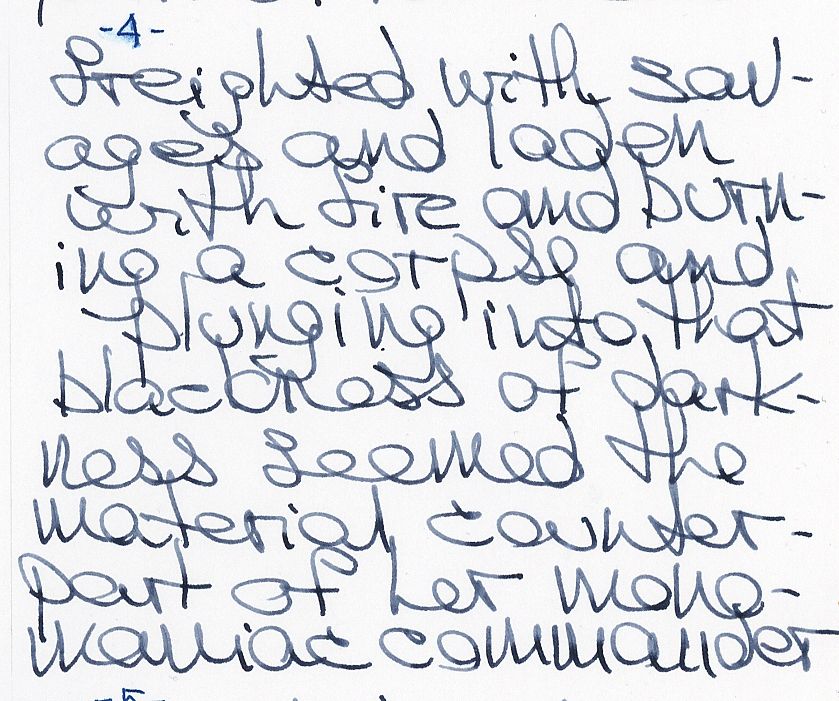 -4-
freighted with sav-
ages and laden
with fire and burn-
ing a corpse and
plunging into that
blackness of dark-
ness seemed the
material counter-
part of her mono-
maniac commander
-5-